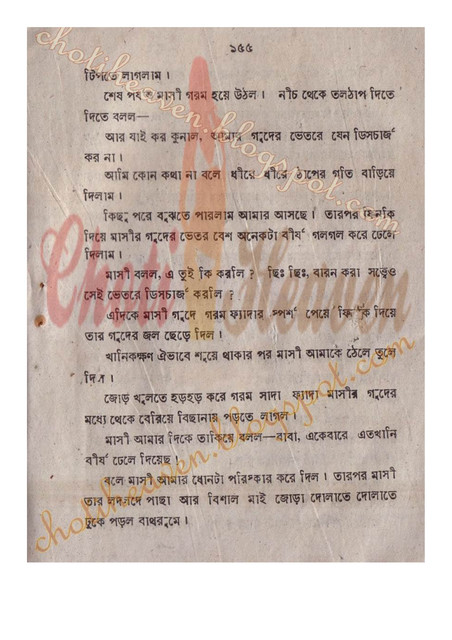 ১৫৫
টিপতে লাগলাম।
শেষ পর্যন্ত মাসী গরম হয়ে উঠল। নীচ থেকে তলঠাপ দিতে
দিতে বলল—
আর যাই কর কুনাল, আমার গুদের ভেতরে যেন ডিসচার্জ
কর না।
আমি কোন কথা না বলে ধীরে ধীরে ঠাপের গতি বাড়িয়ে
দিলাম।
কিছু পরে বুঝতে পারলাম আমার আসছে। তারপর ফিনকি
দিয়ে মাসীর গুদের ভেতর বেশ অনেকটা বীর্য গলগল করে ঢেলে
দিলাম।
মাসী বলল, এ তুই কি করলি? ছিঃ ছিঃ, বারন করা সত্ত্বেও
সেই ভেতরে ডিসচার্জ করলি?
এদিকে মাসী গুদে গরম ফ্যাদার স্পর্শ পেয়ে ফিনকি দিয়ে
তার গুদের জল ছেড়ে দিল।
খানিকক্ষণ ঐভাবে শুয়ে থাকার পর মাসী আমাকে ঠেলে তুলে
দিল।
জোড় খুলতে হড়হড় করে গরম সাদা ফ্যাদা মাসীর গুদের
মধ্যে থেকে বেরিয়ে বিছানায় পড়তে লাগল।
মাসী আমার দিকে তাকিয়ে বলল—বাবা, একেবারে এতখানি
বীর্য ঢেলে দিয়েছ।
বলে মাসী আমার ধোনটা পরিষ্কার করে দিল। তারপর মাসী
তার লদলদে পাছা আর বিশাল মাই জোড়া দোলাতে দোলাতে
ঢুকে পড়ল বাথরুমে।
chotiheaven.blogspot.com
Choti Heaven
chotiheaven.blogspot.com